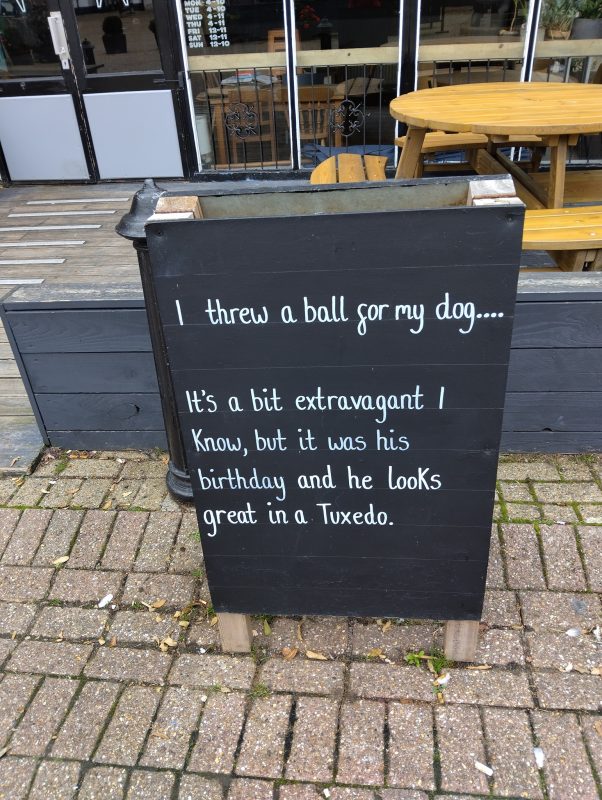 MON. 4-10
TUE 4-10
WED 4-11
THU 4-11
FRI 12-11
SAT 12-11
SUN 12-10
I threw a ball for my dog....
It's a bit extravagant I
Know, but it was his
birthday and he looks
great in a Tuxedo.